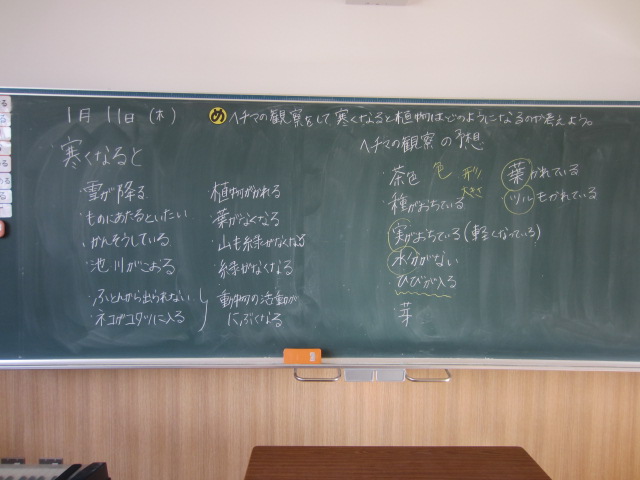 1月11日(木)
め ヘチマの観察をして寒くなると植物はどのようになるのか考えよう。
寒くなると
雪が降る
・ものにあたるといたい
・かんそうしている
・池川がこおる
・ふとんから出られない
・ネコがコタツに入る
植物がかれる
・葉がなくなる
・山も緑がなくなる
・緑がなくなる
・動物の活動が
にぶくなる
ヘチマの観察の予想
・茶色 色 形 大きさ
・種がおちている
・実がおちている(軽くなっている)
・水分がない
・ひびが入る
・芽
・葉 かれている
・ツルもかれている